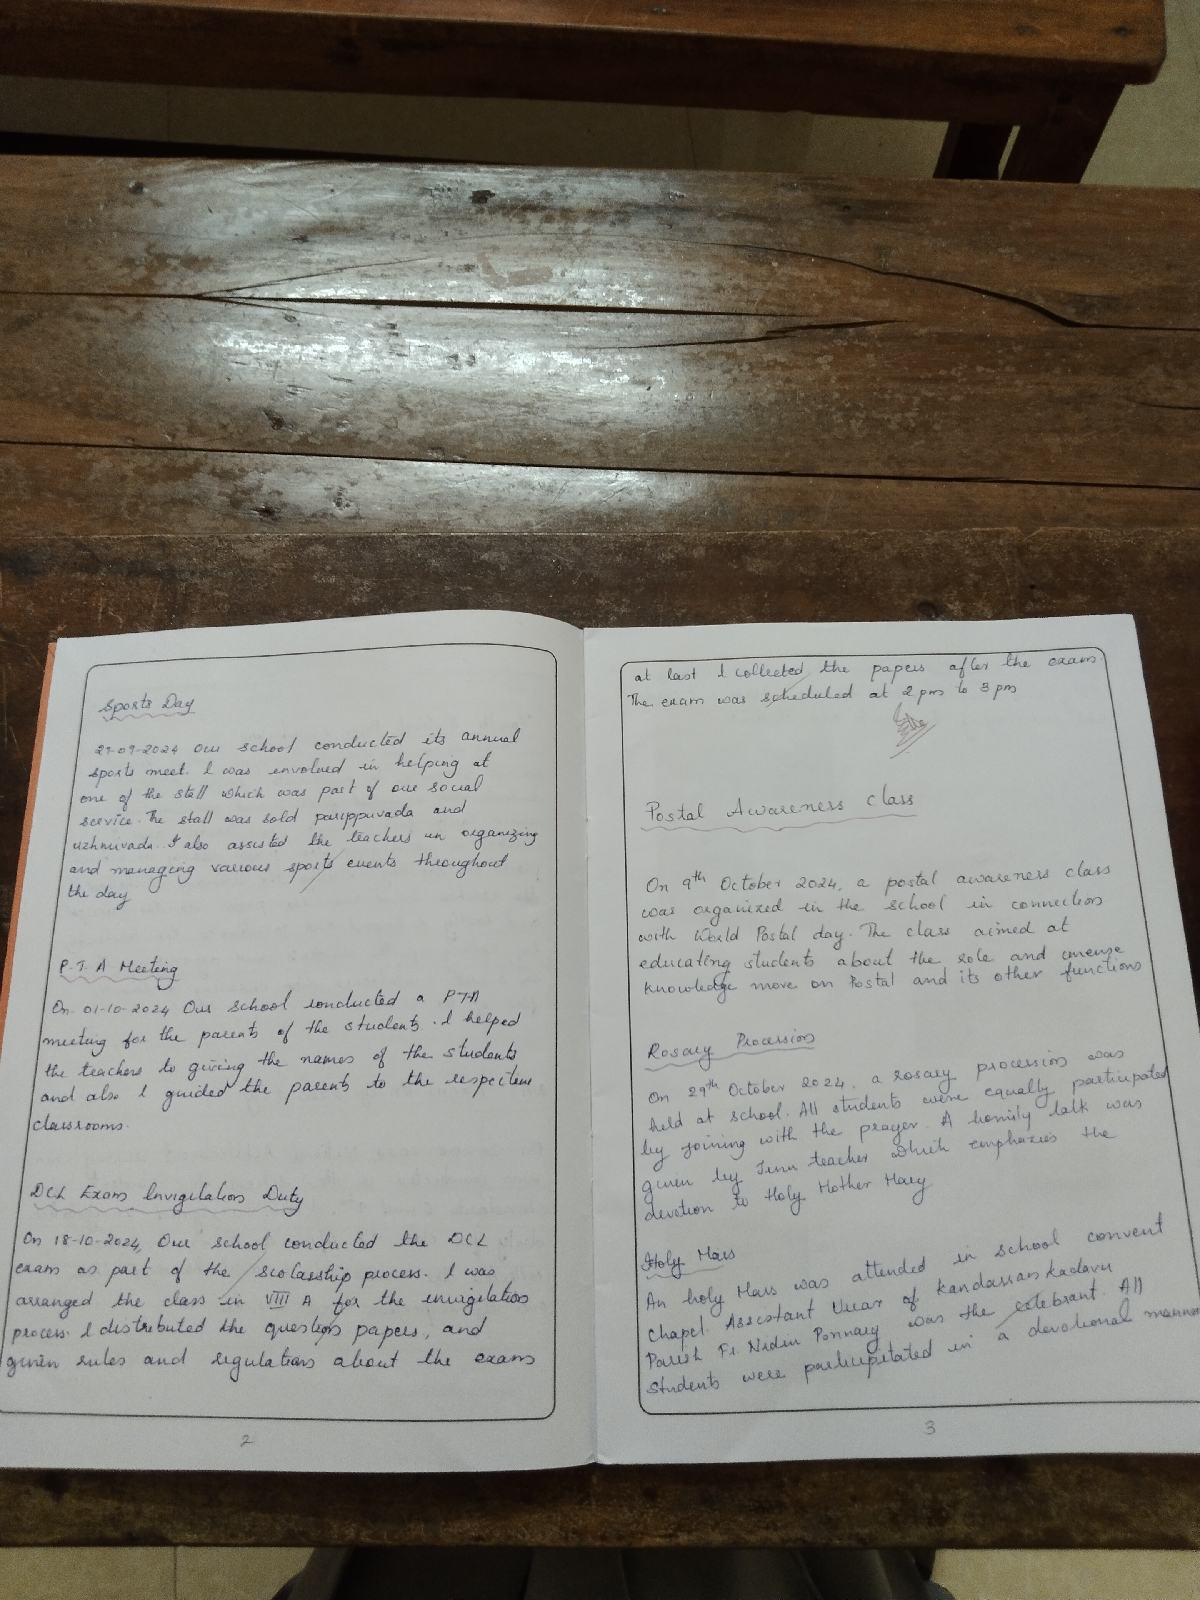 Sports Day
27-09-2024 Our school conducted its annual
sports meet. I was involued in helping at
one of the stall which was part of our social
service. The stall was sold parippuvada and
uzhnuvada. I also assisted the teachers in organizing
and managing various sports events throughout
the day
P.T.A Meeting
On 01-10-2024 Our school conducted a PTA
meeting for the parents of the students. I helped
the teachers to giving the names of the students
and also I guided the parents to the respective
classrooms.
DCL Exam Invigilation Duty
On 18-10-2024, Our school conducted the DCL
exam as part of the scolasship process. I was
arranged the class in VIII A for the invigilation
process. I distributed the questions papers, and
given rules and regulations about the exams
2
at last I collected the papers after the exam
The exam was scheduled at 2 pm to 3 pm
Postal Awareness class
On 9th October 2024, a postal awareness class
was organized in the school in connection
with World Postal day. The class aimed at
educating students about the role and
knowledge more on Postal and its other functions
Rosary Procession
On 29th October 2024, a rosary procession was
held at school. All students were equally participated
by joining with the prayer. A homily talk was
given by teacher which emphazies the
devotion to Holy Mother Mary
Holy Mass
An holy Mass was attended in school convent
chapel. Assistant Vicar of Kandassankadavu
Parish Fr. was the celebrant. All
students were participitated in a devotional manner
3